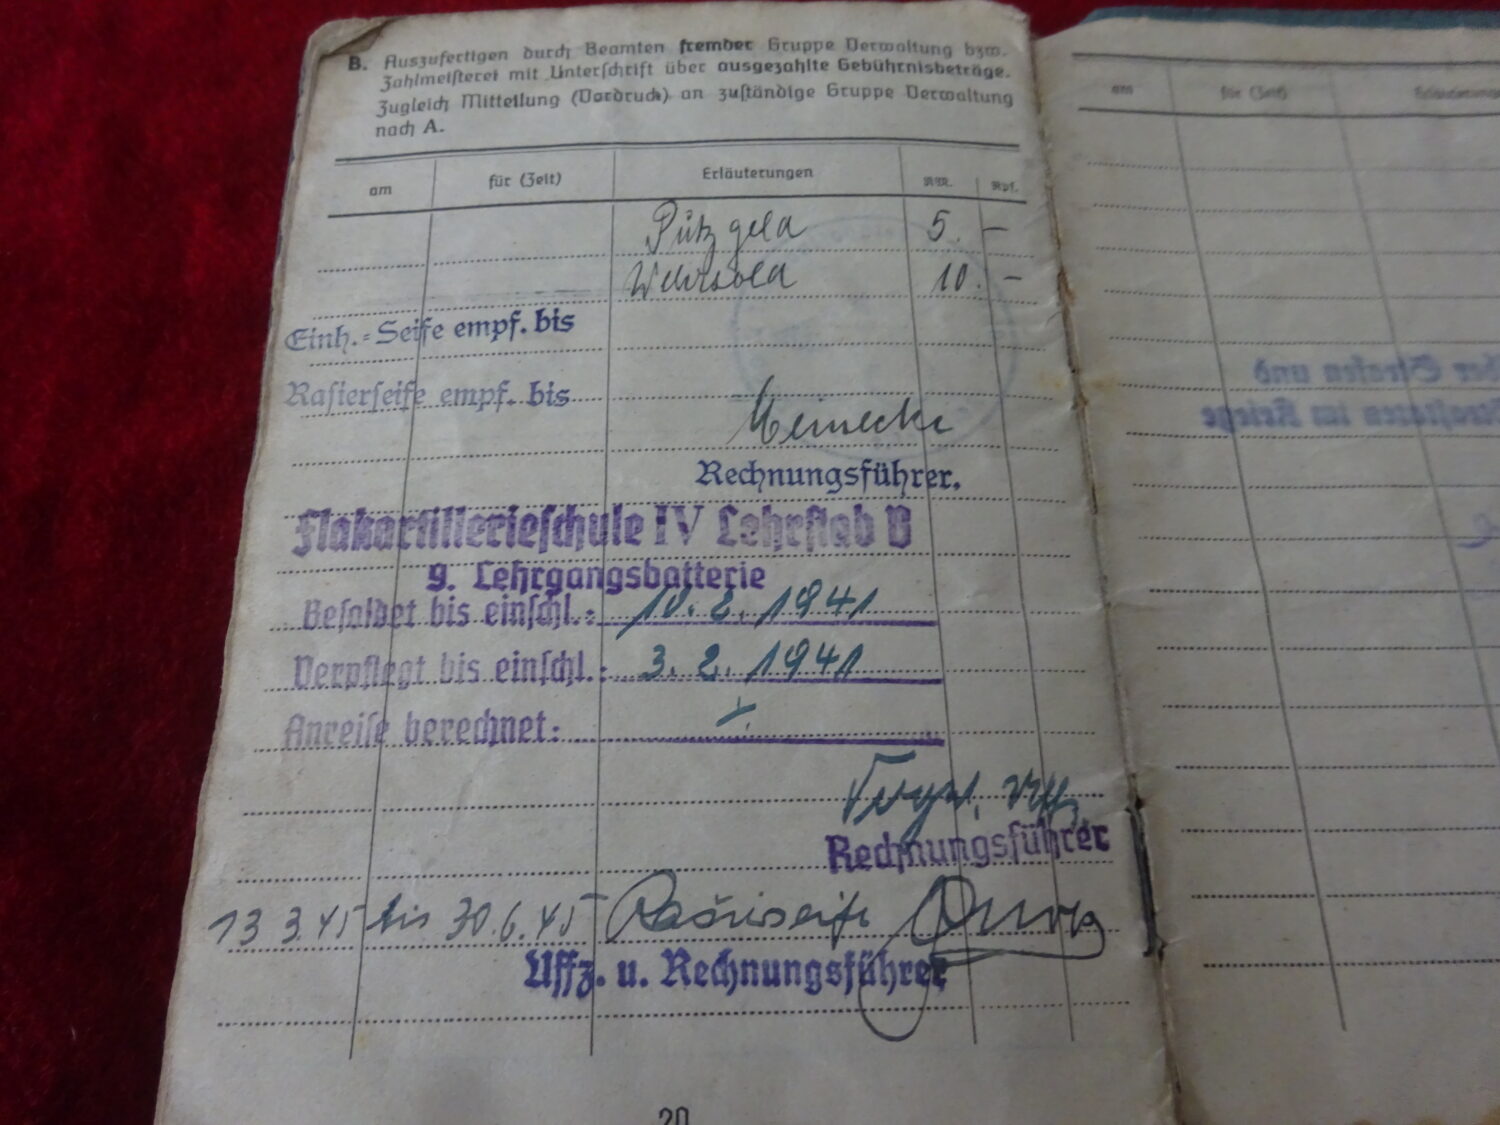 B. Auszufertigen durch Beamten fremder Gruppe Verwaltung bzw.
Zahlmeisterei mit Unterschrift über ausgezahlte Gebührnisbeträge.
Zugleich Mitteilung (Vordruck) an zuständige Gruppe Verwaltung
nach A.
am für (Zeit) Erläuterungen RM. Rpf.
Putzgeld 5. —
Wehrsold 10. —
Einh.=Seife empf. bis
Rasierseife empf. bis
Meinecke
Rechnungsführer.
Flakartillerieschule IV Lehrstab B
9. Lehrgangsbatterie
Besoldet bis einschl.: 10. 2. 1941
Verpflegt bis einschl.: 3. 2. 1941
Anreise berechnet:
Rechnungsführer
13 3.45 bis 30.6.45 Rasierseife
Uffz. u. Rechnungsführer
20
am für (Zeit) Erläuterungen